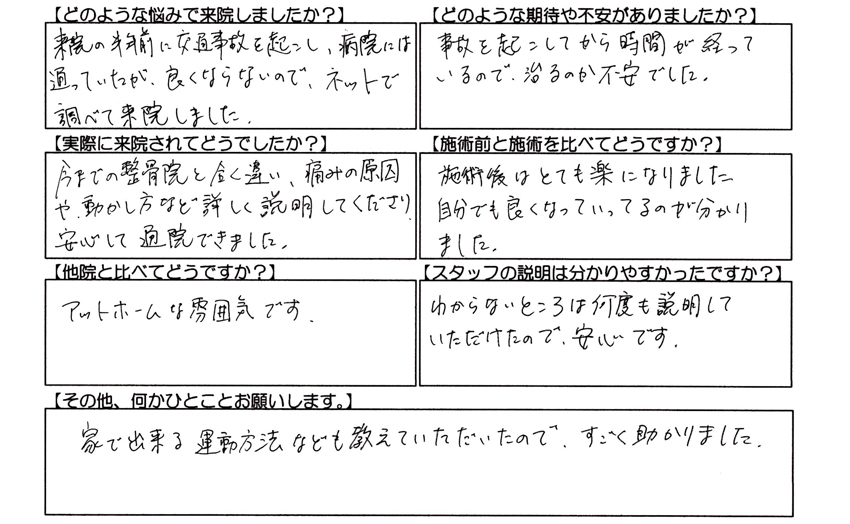 【どのような悩みで来院しましたか？】
来院の半年前に交通事故を起こし、病院には
通っていたが、良くならないので、ネットで
調べて来院しました.
【どのような期待や不安がありましたか？】
事故を起こしてから時間が経って
いるので、治るのか不安でした.
【実際に来院されてどうでしたか？】
今までの整骨院と全く違い、痛みの原因
や、動かし方など詳しく説明してくださり、
安心して通院できました.
【施術前と施術を比べてどうですか？】
施術後はとても楽になりました
自分でも良くなっていってるのが分かり
ました.
【他院と比べてどうですか？】
アットホームな雰囲気です.
【スタッフの説明は分かりやすかったですか？】
わからないところは何度も説明して
いただけたので、安心です.
【その他、何かひとことお願いします。】
家で出来る運動方法なども教えていただいたので、すごく助かりました.